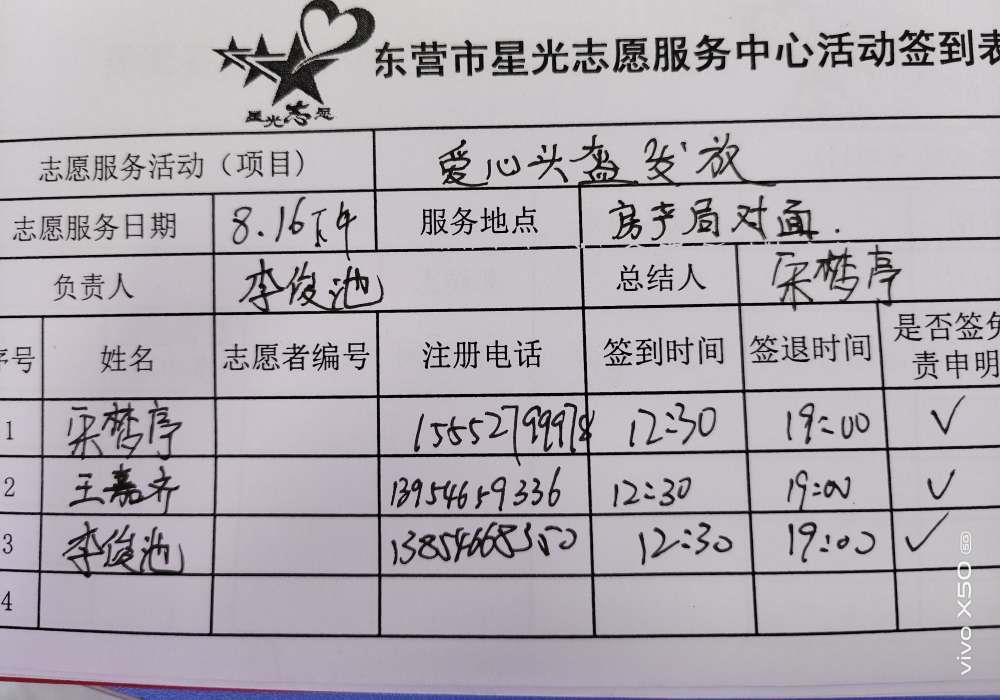 星光志愿
东营市星光志愿服务中心活动签到表
志愿服务活动（项目） 爱心头盔发放
志愿服务日期 8.16下午 服务地点 房产局对面.
负责人 李俊池 总结人 宋梦亭
序号 姓名 志愿者编号 注册电话 签到时间 签退时间 是否签免责申明
1 宋梦亭 15552799978 12:30 19:00 ✓
2 王嘉齐 13954659336 12:30 19:00 ✓
3 李俊池 13854668350 12:30 19:00 ✓
4
vivo X50 5G